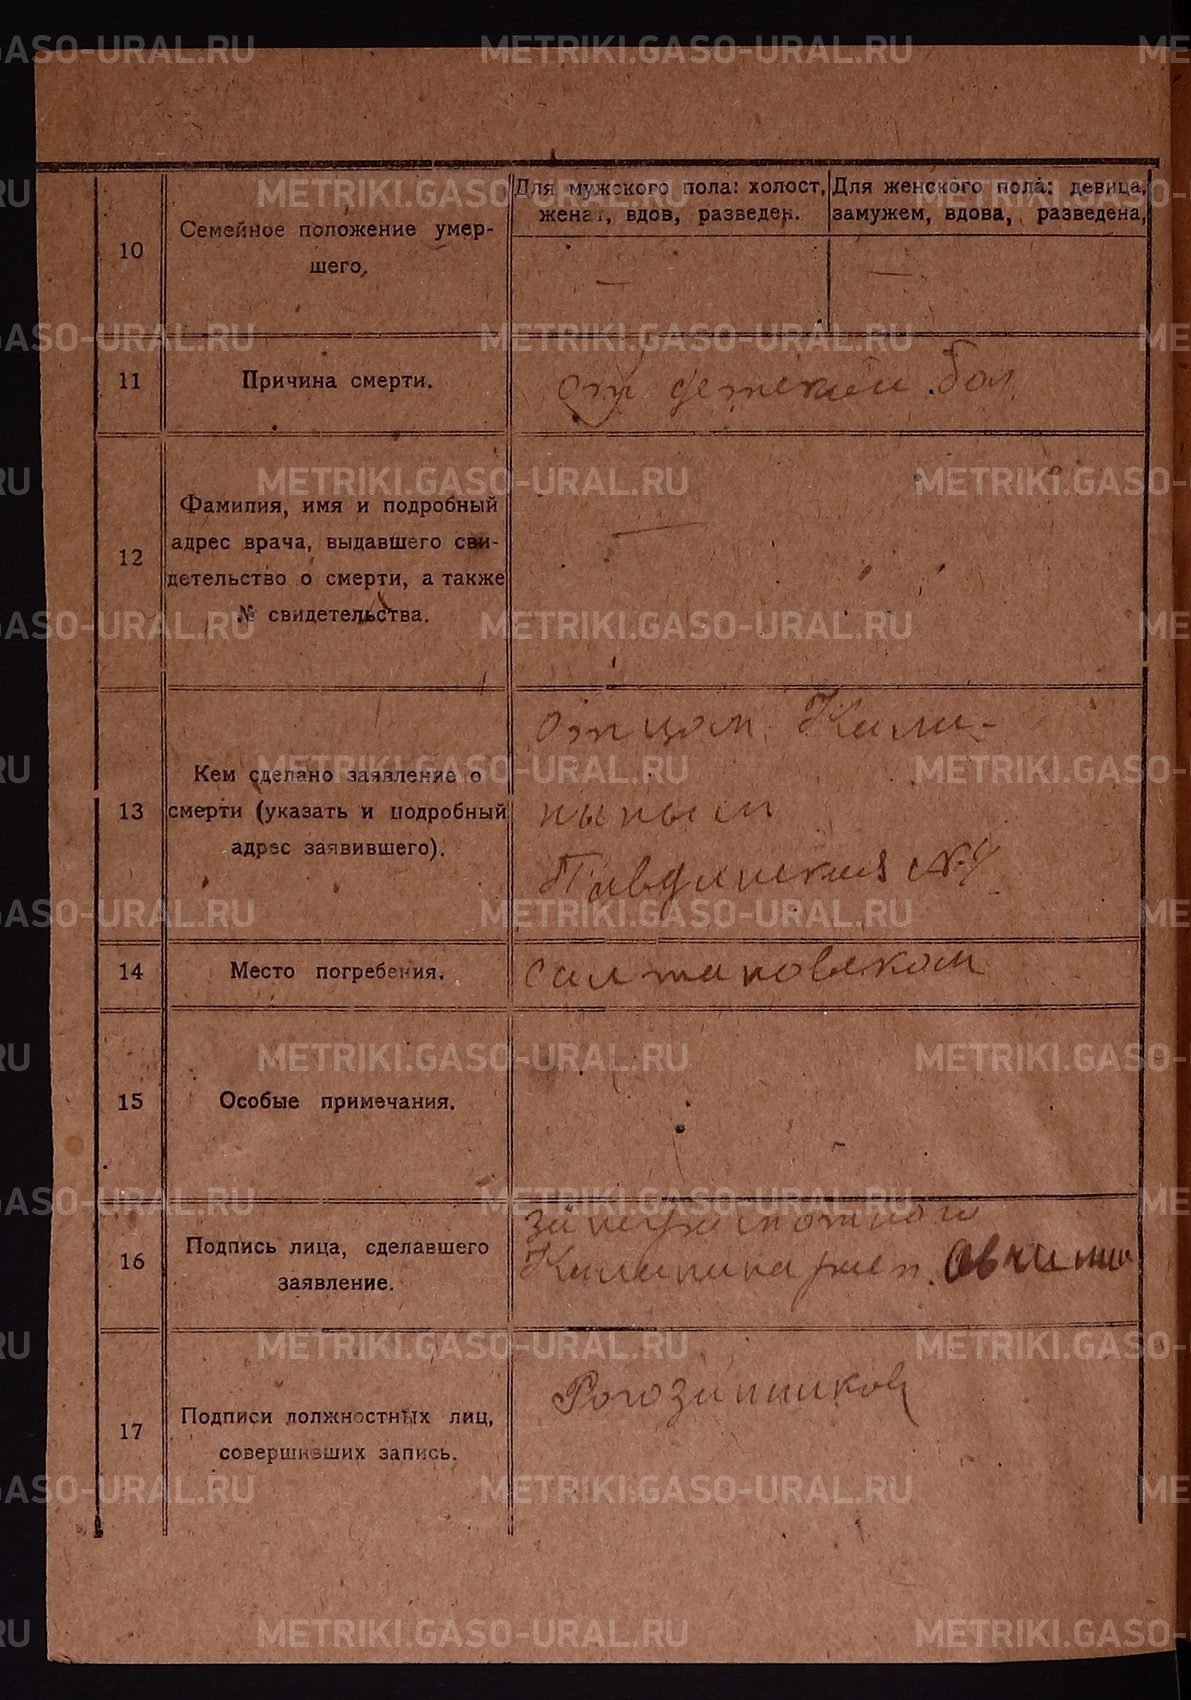 Для мужского пола: холост, женат, вдов, разведен.
Для женского пола: девица, замужем, вдова, разведена,
10
Семейное положение умер-
шего,
—
—
11
Причина смерти.
от детской бол
12
Фамилия, имя и подробный
адрес врача, выдавшего сви-
детельство о смерти, а также
№ свидетельства.
—
13
Кем сделано заявление о
смерти (указать и подробный
адрес заявившего).
отцом
№ 4
14
Место погребения.
салтановском
15
Особые примечания.
16
Подпись лица, сделавшего
заявление.
за неграмотного
17
Подписи должностных лиц,
совершивших запись.
Рогозинников
METRIKI.GASO-URAL.RU